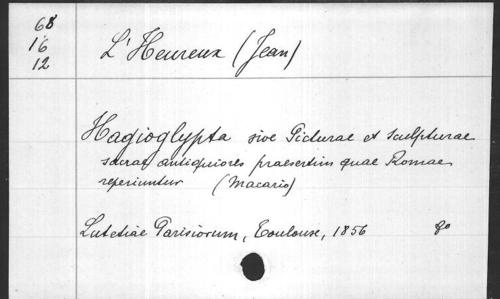 68
16
12
L'Heureux (Jean)
Hagioglypta sive Picturae et sculpturae
sacrae antiquiores praesertim quae Romae
reperiuntur (Macario)
Lutetiae Parisiorum, Toulouse, 1856 8o